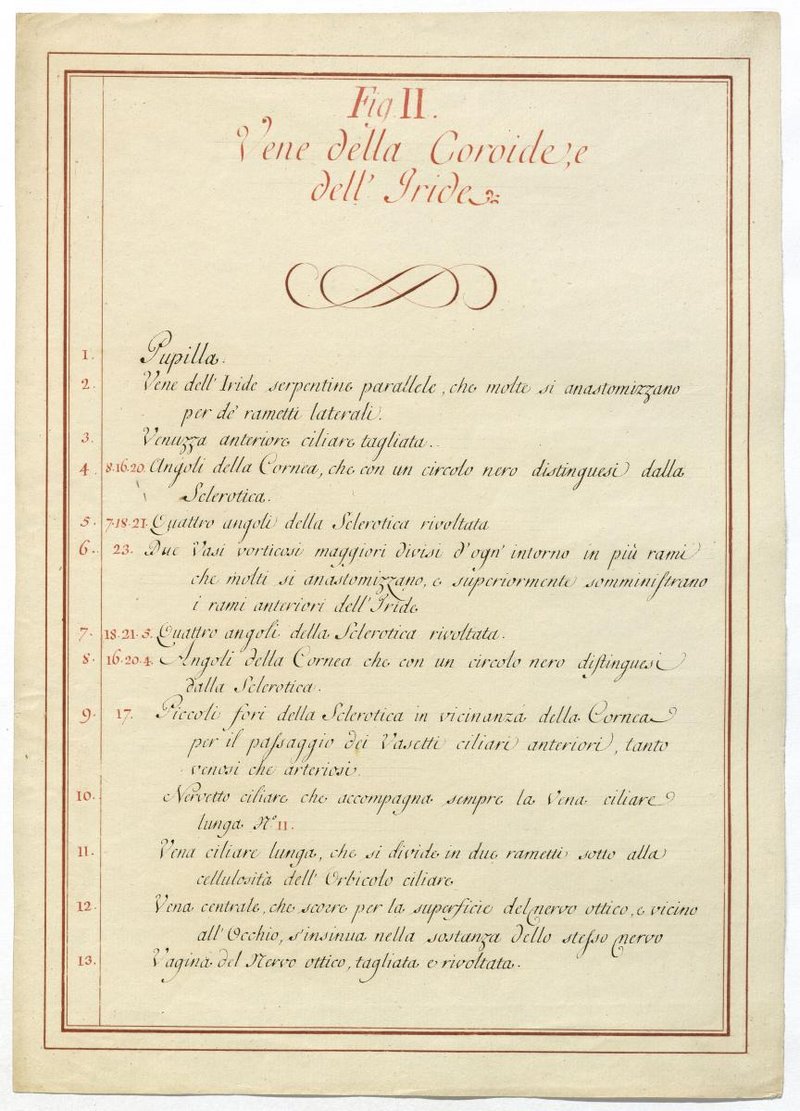 Fig II.
Vene della Coroide, e
dell' Iride
1. Pupilla.
2. Vene dell' Iride serpentine parallele, che molte si anastomizzano
per de' rametti laterali.
3. Venuzza anteriore ciliare tagliata.
4. 8. 16. 20. Angoli della Cornea, che con un circolo nero distinguesi dalla
Sclerotica.
5. 7. 18. 21. Quattro angoli della Sclerotica rivoltata
6. 23. Due Vasi vorticosi maggiori divisi d'ogn' intorno in più rami
che molti si anastomizzano, e superiormente somminiſtrano
i rami anteriori dell' Iride
7. 18. 21. 5. Quattro angoli della Sclerotica rivoltata.
8. 16. 20. 4. Angoli della Cornea che con un circolo nero diſtinguesi
dalla Sclerotica.
9. 17. Piccoli fori della Sclerotica in vicinanza della Cornea
per il paſsaggio dei Vasetti ciliari anteriori, tanto
venosi che arteriosi.
10. Nervetto ciliare che accompagna sempre la Vena ciliare
lunga N.º 11.
11. Vena ciliare lunga, che si divide in due rametti sotto alla
cellulosità dell' Orbicolo ciliare
12. Vena centrale, che scorre per la superficie del nervo ottico, e vicino
all' Occhio, s'insinua nella sostanza dello steſso nervo
13. Vagina del Nervo ottico, tagliata e rivoltata.